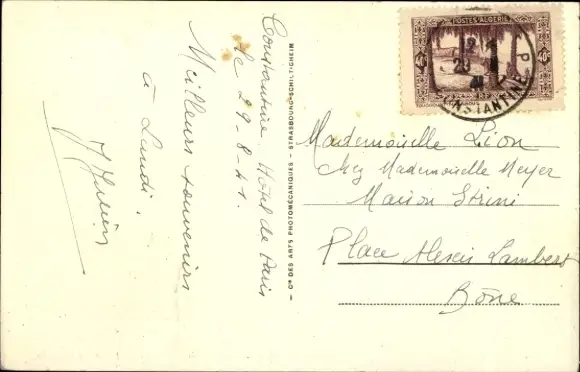 Constantine. Hôtel de Paris
Le 29-8-41.
Meilleurs souvenirs
à Lundi.
Cie DES ARTS PHOTOMÉCANIQUES - STRASBOURG-SCHILTIGHEIM
POSTES ALGERIE
40c
40c
12
29
41
CONSTANTINE P
Mademoiselle Lion
chez Mademoiselle Meyer
Maison
Place Alexis Lambert
Bône